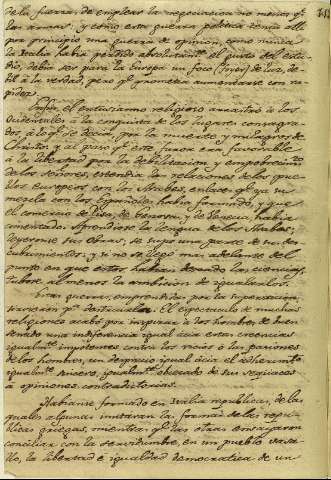 de la fuerza de emplear la negociacion no menos qᵉ
las armas. y como esta guerra politica tenia alli
por principio una guerra de opinion, como nunca
la Italia habia perdido absolutamᵗᵉ el gusto del estu-
dio, debia ser para la Europa un foco (foyer) de luz, de-
bil á la verdad, pero qᵉ prometia aumentarse con ra-
pidez.
En fin el entusiasmo religioso arrastró á los
Occidentales á la conquista de los lugares consagra-
dos á lo qᵉ se decia, por la muerte y milagros de
Christo; y al paso qᵉ este furor era favorable
á la libertad por la debilitacion y empobrecimᵗᵒ
de los Señores, estendia las relaciones de los pue-
blos Europeos con los Arabes, enlaces qᵉ ya su
mezcla con los Españoles habia formado, y que
el comercio de Pisa, de Genova, y de Venecia, habia
cimentado. Aprendiose la lengua de los Arabes;
leyeronse sus obras; se supo una parte de sus des-
cubrimientos; y si no se llegó mas adelante del
punto en que estos habian dexado las ciencias,
tubose al menos la ambicion de igualarlos.
Estas guerras, emprendidas por la supersticion,
sirvieron pᵃ destruirla. El espectaculo de muchas
religiones acabó por inspirar á los hombres de buen
sentido una indiferencia igual ácia estas creencias
igualmᵗᵉ impotentes contra los vicios ó las pasiones
de los hombres, un desprecio igual ácia el adherimᵗᵒ
igualmᵗᵉ sincero, igualmᵗᵉ obcecado de sus sequaces
á opiniones contradictorias.
Habianse formado en Italia republicas, de las
quales algunas imitaran las formas de las repu-
blicas griegas, mientras qᵉ las otras ensayaron
conciliar con la servidumbre, en un pueblo vasa-
llo, la libertad é igualdad democratica de un